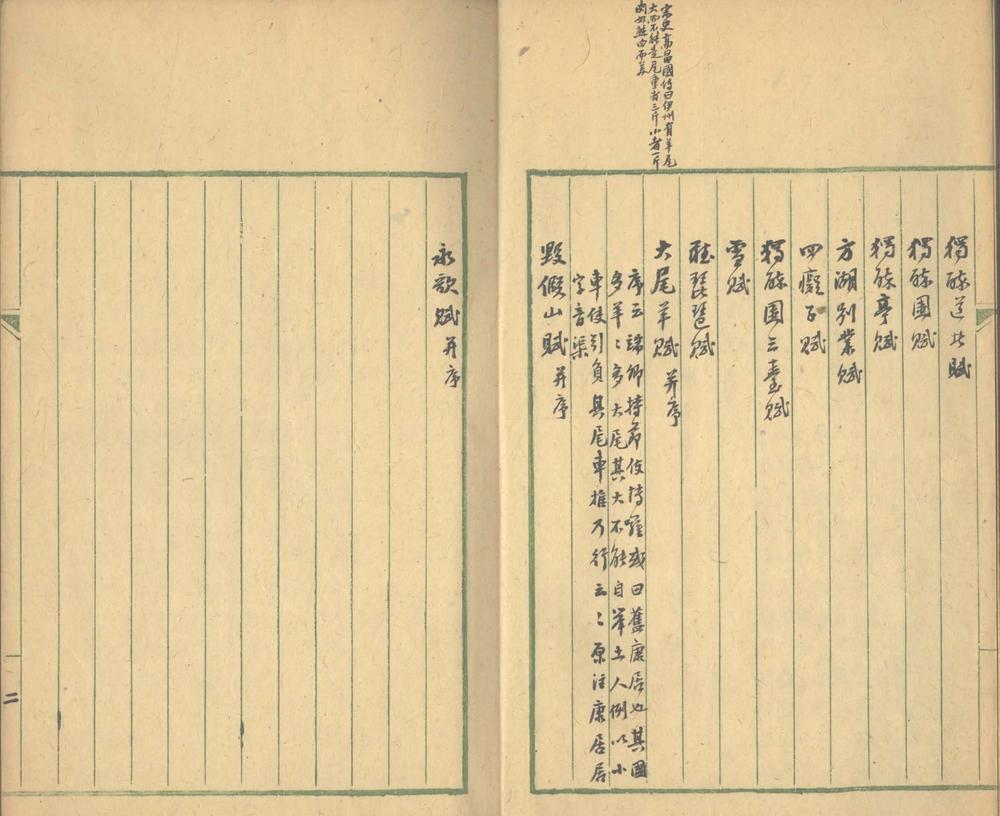 宋史高昌國傳曰伊州有羊尾
大而不能走尾重者三斤小者一斤
肉如熊白而美
獨醉道者賦
獨醉園賦
獨醉亭賦
方湖別業賦
四癡子賦
獨醉園三臺賦
雪賦
琵琶賦
大尾羊賦 并序
序云端卿持節使持羅或曰舊康居也其國
多羊〻多大尾其大不能自举土人例以小
車使引負其尾車推乃行云〻原注康居居
字音渠
毀假山賦 并序
永歌賦 并序
二